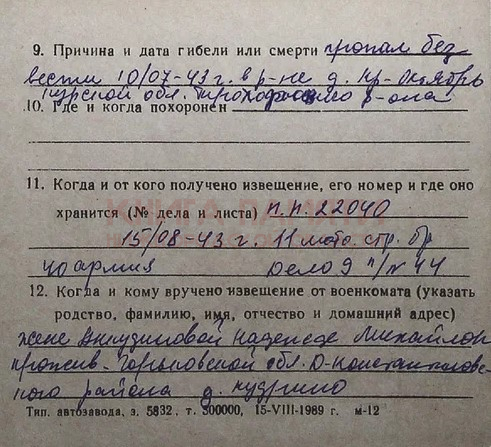 9. Причина и дата гибели или смерти пропал без
вести 10/07-43 г. в р-не д. Кр-Октябрь
Курской обл. Прохоровского р-она
10. Где и когда похоронен
11. Когда и от кого получено извещение, его номер и где оно
хранится (№ дела и листа) п.п. 22040
15/08-43 г. 11 мото. стр. бр
40 армия дело 9 п/№ 44
12. Когда и кому вручено извещение от военкомата (указать
родство, фамилию, имя, отчество и домашний адрес)
жене Надежде Михайлов
прожив. Горьковской обл. Д-Константиновс-
кого района д. Кудрино
Тип. автозавода, з. 5832, т. 300000, 15-VIII-1989 г. м-12